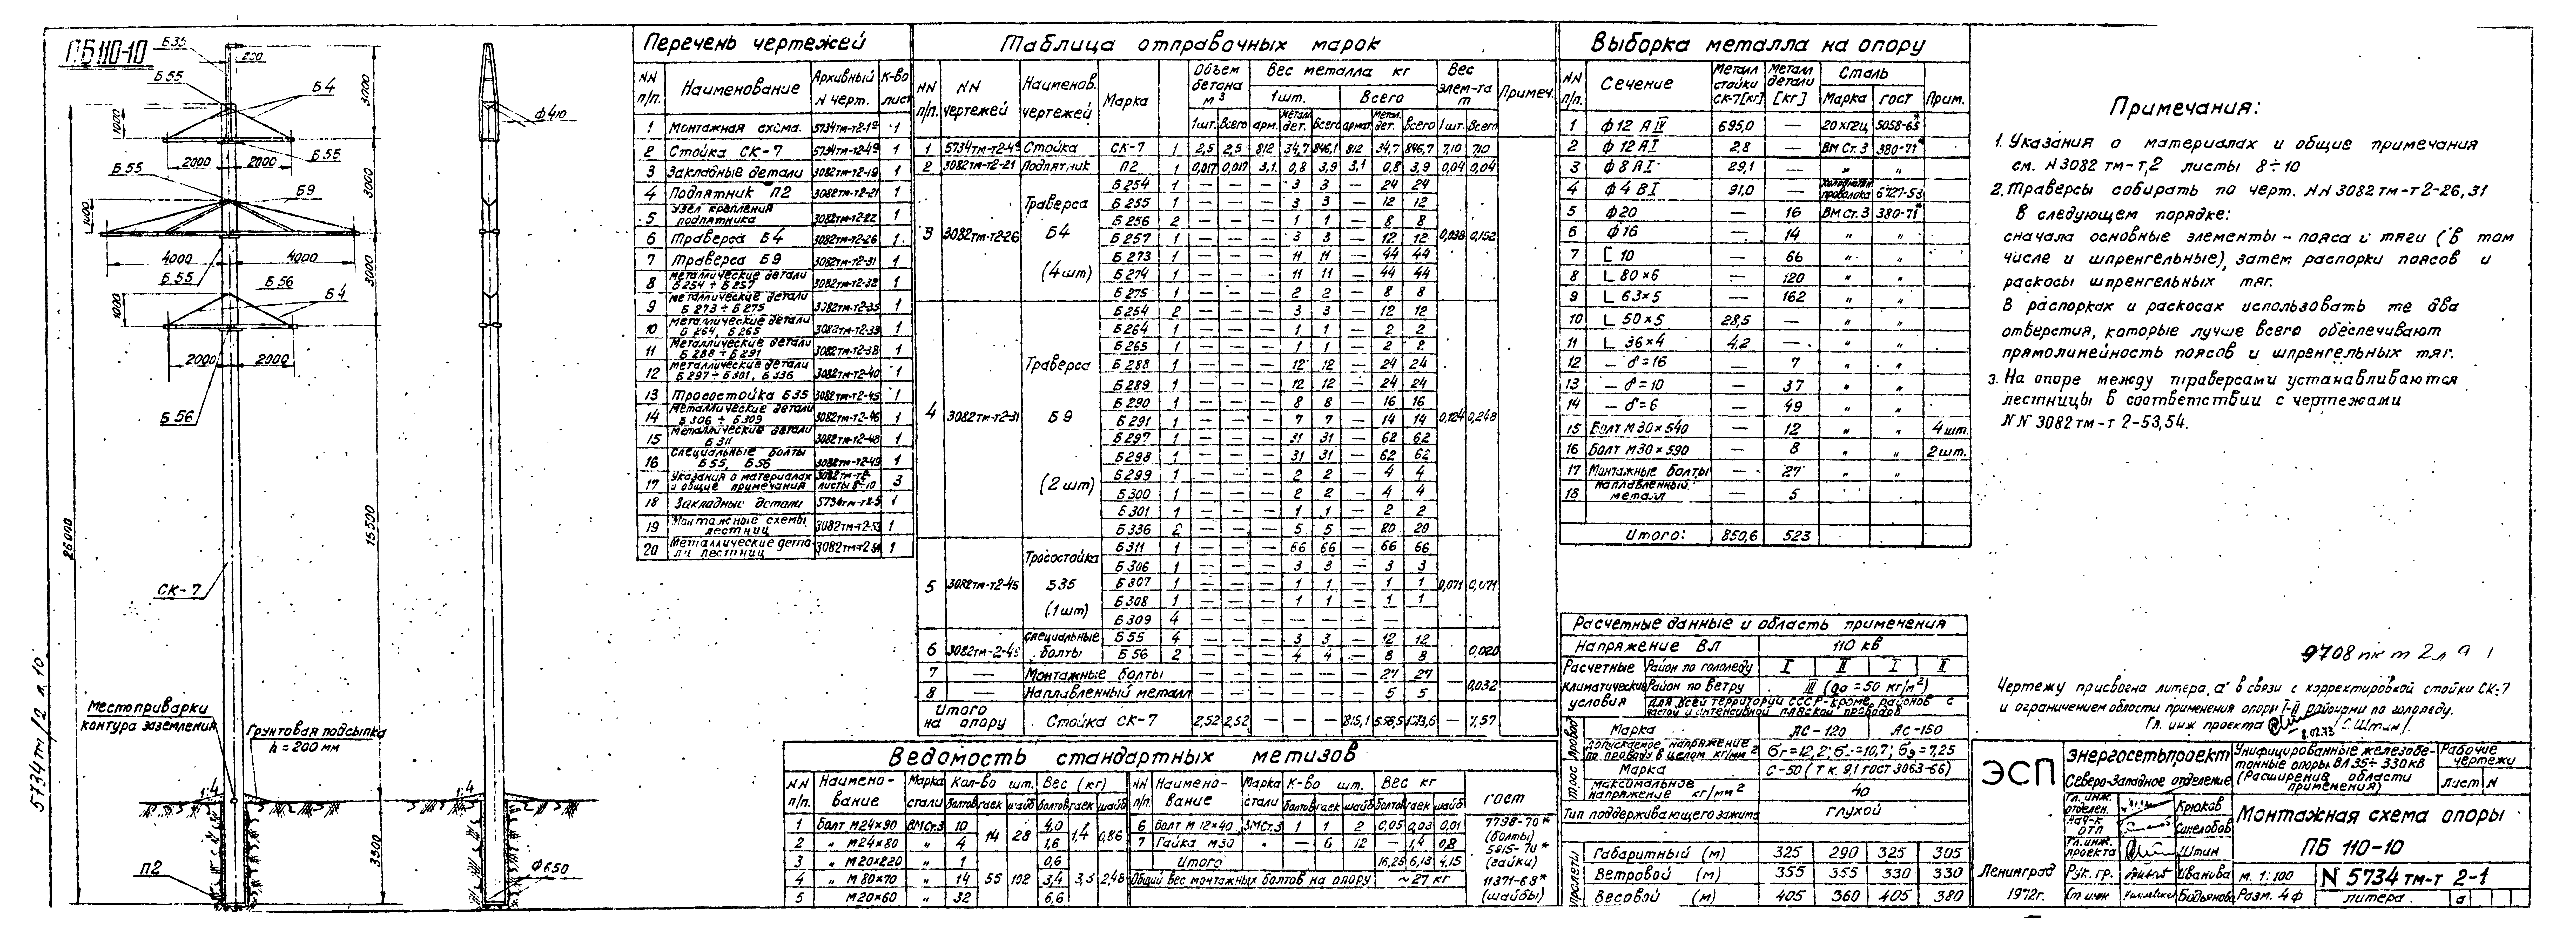 ПБ110-10
Б35
200
Б55
Б4
3000
1000
2000 2000
Б55
Б55
Б9
3000
4000 4000
Б55
Б56
Б4
3000
1000
2000 2000
Б56
26000
15500
СК-7
Место приварки
контура заземления
Грунтовая подсыпка
h = 200 мм
1:4
1:4
П2
3300
ф410
ф650
5734тм/2 л.10
Перечень чертежей
NN п/п. Наименование Архивный N черт. К-во лист
1 Монтажная схема 5734тм-т2-1а 1
2 Стойка СК-7 5734тм-т2-4а 1
3 Закладные детали 3082тм-т2-19 1
4 Подпятник П2 3082тм-т2-21 1
5 Узел крепления подпятника 3082тм-т2-22 1
6 Траверса Б4 3082тм-т2-26 1
7 Траверса Б9 3082тм-т2-31 1
8 Металлические детали Б254÷Б257 3082тм-т2-32 1
9 Металлические детали Б273÷Б275 3082тм-т2-35 1
10 Металлические детали Б264, Б265 3082тм-т2-33 1
11 Металлические детали Б288÷Б291 3082тм-т2-38 1
12 Металлические детали Б297÷Б301, Б336 3082тм-т2-40 1
13 Тросостойка Б35 3082тм-т2-45 1
14 Металлические детали Б306÷Б309 3082тм-т2-46 1
15 Металлические детали Б311 3082тм-т2-48 1
16 Специальные болты Б55, Б56 3082тм-т2-49 1
17 Указания о материалах и общие примечания 3082тм-т2 листы 8-10 3
18 Закладные детали 5734тм-т2-5 1
19 Монтажные схемы лестниц 3082тм-т2-53 1
20 Металлические детали лестниц 3082тм-т2-54 1
Таблица отправочных марок
NN п/п. NN чертежей Наименов. чертежей Марка Объем бетона м3 Вес металла кг Вес элем-та т Примеч.
1шт. Всего
1шт. Всего арм. метал. дет. Всего армат. метал. дет. Всего 1шт. Всего
1 5734тм-т2-4а Стойка СК-7 1 2,5 2,5 812 34,7 846,1 812 34,7 846,7 7,10 7,10
2 3082тм-т2-21 Подпятник П2 1 0,017 0,017 3,1 0,8 3,9 3,1 0,8 3,9 0,04 0,04
3 3082тм-т2-26 Траверса Б4 (4шт) 0,038 0,152
Б254 1 — — — 3 3 — 24 24
Б255 1 — — — 3 3 — 12 12
Б256 2 — — — 1 1 — 8 8
Б257 1 — — — 3 3 — 12 12
Б273 1 — — — 11 11 — 44 44
Б274 1 — — — 11 11 — 44 44
Б275 1 — — — 2 2 — 8 8
4 3082тм-т2-31 Траверса Б9 (2шт) 0,124 0,248
Б254 2 — — — 3 3 — 12 12
Б264 1 — — — 1 1 — 2 2
Б265 1 — — — 1 1 — 2 2
Б288 1 — — — 12 12 — 24 24
Б289 1 — — — 12 12 — 24 24
Б290 1 — — — 8 8 — 16 16
Б291 1 — — — 7 7 — 14 14
Б297 1 — — — 31 31 — 62 62
Б298 1 — — — 31 31 — 62 62
Б299 1 — — — 2 2 — 4 4
Б300 1 — — — 2 2 — 4 4
Б301 1 — — — 1 1 — 2 2
Б336 2 — — — 5 5 — 20 20
5 3082тм-т2-45 Тросостойка Б35 (1шт) 0,071 0,071
Б311 1 — — — 66 66 — 66 66
Б306 1 — — — 3 3 — 3 3
Б307 1 — — — 1 1 — 1 1
Б308 1 — — — 1 1 — 1 1
Б309 4 — — — — — — — —
6 3082тм-2-49 Специальные болты 0,020
Б55 4 — — — 3 3 — 12 12
Б56 2 — — — 4 4 — 8 8
7 — Монтажные болты — 27 27
8 — Наплавленный металл — 5 5 0,032
Итого на опору Стойка СК-7 2,52 2,52 — — — 815,1 558,5 1373,6 — 7,57
Ведомость стандартных метизов
NN п/п. Наименование Марка стали Кол-во шт. Вес (кг) NN п/п. Наименование Марка стали К-во шт. Вес кг ГОСТ
болтов гаек шайб болтов гаек шайб болтов гаек шайб болтов гаек шайб
1 Болт М24×90 ВМСт.3 10 14 28 4,0 1,4 0,86 6 Болт М12×40 ВМСт.3 1 1 2 0,05 0,03 0,01 7798-70* (болты)
2 " М24×80 " 4 1,6 7 Гайка М30 " — 6 12 — 1,4 0,8 5915-70* (гайки)
3 " М20×220 " 1 0,6 Итого 16,25 6,13 4,15
4 " М80×70 " 14 55 102 3,4 3,3 2,48 Общий вес монтажных болтов на опору ~27 кг 11371-68* (шайбы)
5 М20×60 " 32 6,6
Выборка металла на опору
NN п/п. Сечение Металл стойки СК-7[кг] Металл детали [кг] Сталь Марка ГОСТ Прим.
1 ф12 АIV 695,0 — 20ХГ2Ц 5058-65*
2 ф12 АI 2,8 — ВМ Ст.3 380-71*
3 ф8 АI 29,1 — " "
4 ф4 ВI 91,0 — Холоднотян. проволока 6727-53
5 ф20 — 16 ВМ Ст.3 380-71*
6 ф16 — 14 " "
7 [ 10 — 66 " "
8 L 80×6 — 120 " "
9 L 63×5 — 162 " "
10 L 50×5 28,5 — " "
11 L 36×4 4,2 — " "
12 – δ=16 — 7 " "
13 – δ=10 — 37 " "
14 – δ=6 — 49 " "
15 Болт М30×540 — 12 " " 4шт.
16 Болт М30×590 — 8 " " 2шт.
17 Монтажные болты — 27 " "
18 Наплавленный металл — 5
Итого: 850,6 523
Расчетные данные и область применения
Напряжение ВЛ 110 кв
Расчетные климатические условия
Район по гололеду I II I II
Район по ветру III (qo=50 кг/м²)
Для всей территории СССР кроме районов с частой и интенсивной пляской проводов
Провод Марка АС-120 АС-150
Допускаемое напряжение по проводу в целом кг/мм² σг=12,2; σ-=10,7; σэ=7,25
Трос Марка С-50 (ТК 9,1 ГОСТ 3063-66)
Максимальное напряжение кг/мм² 40
Тип поддерживающего зажима глухой
Пролеты
Габаритный (м) 325 290 325 305
Ветровой (м) 355 355 330 330
Весовой (м) 405 360 405 380
Примечания:
1. Указания о материалах и общие примечания
см. N3082 тм-т,2 листы 8÷10
2. Траверсы собирать по черт. NN 3082тм-т2-26,31
в следующем порядке:
сначала основные элементы – пояса и тяги (в том
числе и шпренгельные), затем распорки поясов и
раскосы шпренгельных тяг.
В распорках и раскосах использовать те два
отверстия, которые лучше всего обеспечивают
прямолинейность поясов и шпренгельных тяг.
3. На опоре между траверсами устанавливаются
лестницы в соответствии с чертежами
NN 3082тм-т 2-53,54.
Чертежу присвоена литера „а" в связи с корректировкой стойки СК-7
и ограничением области применения опоры I-II районами по гололеду.
Гл. инж проекта /С.Штин/
8.02.73
ЭСП
Энергосетьпроект
Северо-Западное отделение
Унифицированные железобетонные опоры ВЛ 35÷330кв
(Расширение области применения)
Рабочие чертежи
Лист N
Гл. инж. отделен. Крюков
Нач-к ОТП Синелобов
Гл. инж. проекта Штин
Рук. гр. Иванова
Ст инж Бодьянова
Монтажная схема опоры
ПБ 110-10
Ленинград
1972г.
М. 1:100
Разм. 4ф
N 5734тм-т 2-1
литера а